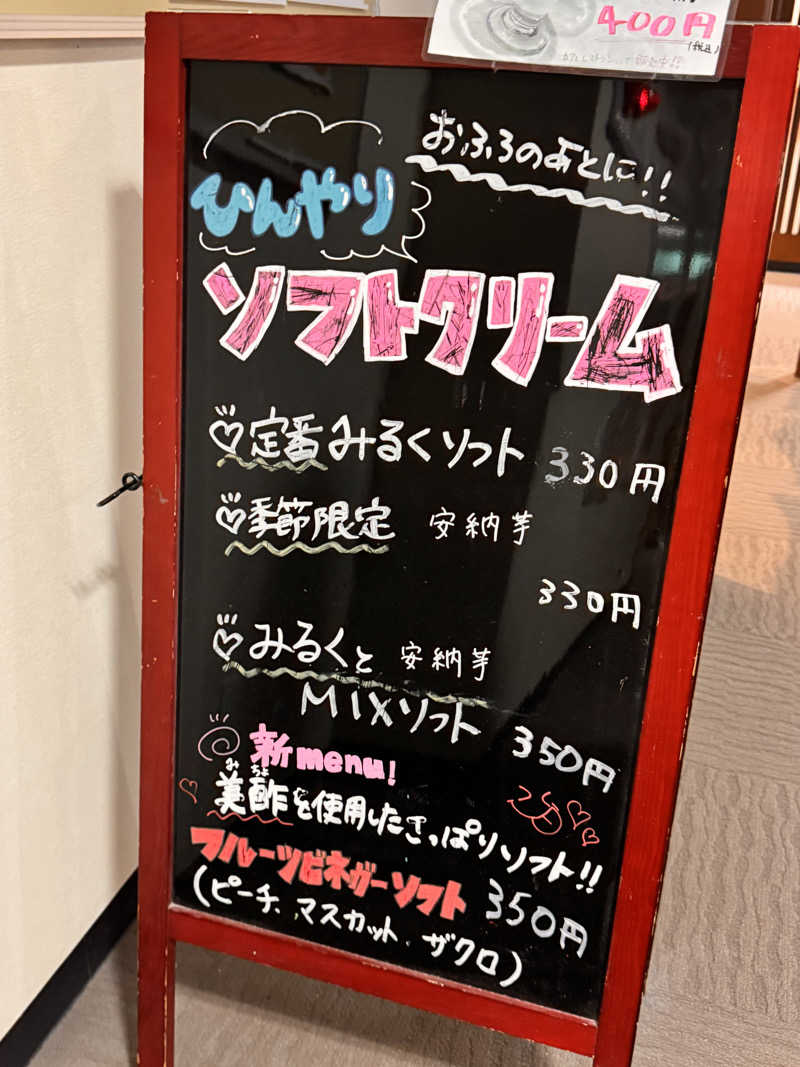 400円
(税込)
おふろのあとに!!
ひんやり
ソフトクリーム
定番みるくソフト 330円
季節限定 安納芋
330円
みるくと 安納芋
MIXソフト 350円
新menu!
みちょ
美酢を使用したさっぱりソフト!!
フルーツビネガーソフト 350円
(ピーチ、マスカット、ザクロ)